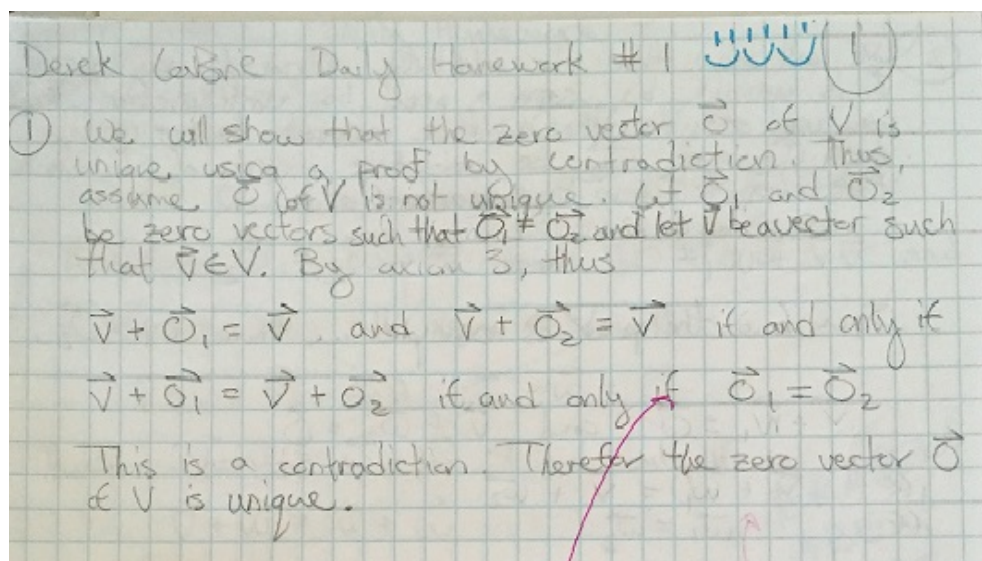 Derek Daily Homework # 1 1
① We will show that the zero vector \vec{0} of V is
unique using a proof by contradiction. Thus,
assume \vec{0} of V is not unique. Let \vec{0}_1 and \vec{0}_2
be zero vectors such that \vec{0}_1 ≠ \vec{0}_2 and let \vec{v} be a vector such
that \vec{v} ∈ V. By axiom 3, thus
\vec{v} + \vec{0}_1 = \vec{v} and \vec{v} + \vec{0}_2 = \vec{v} if and only if
\vec{v} + \vec{0}_1 = \vec{v} + \vec{0}_2 if and only if \vec{0}_1 = \vec{0}_2
This is a contradiction. Therefor the zero vector \vec{0}
of V is unique.